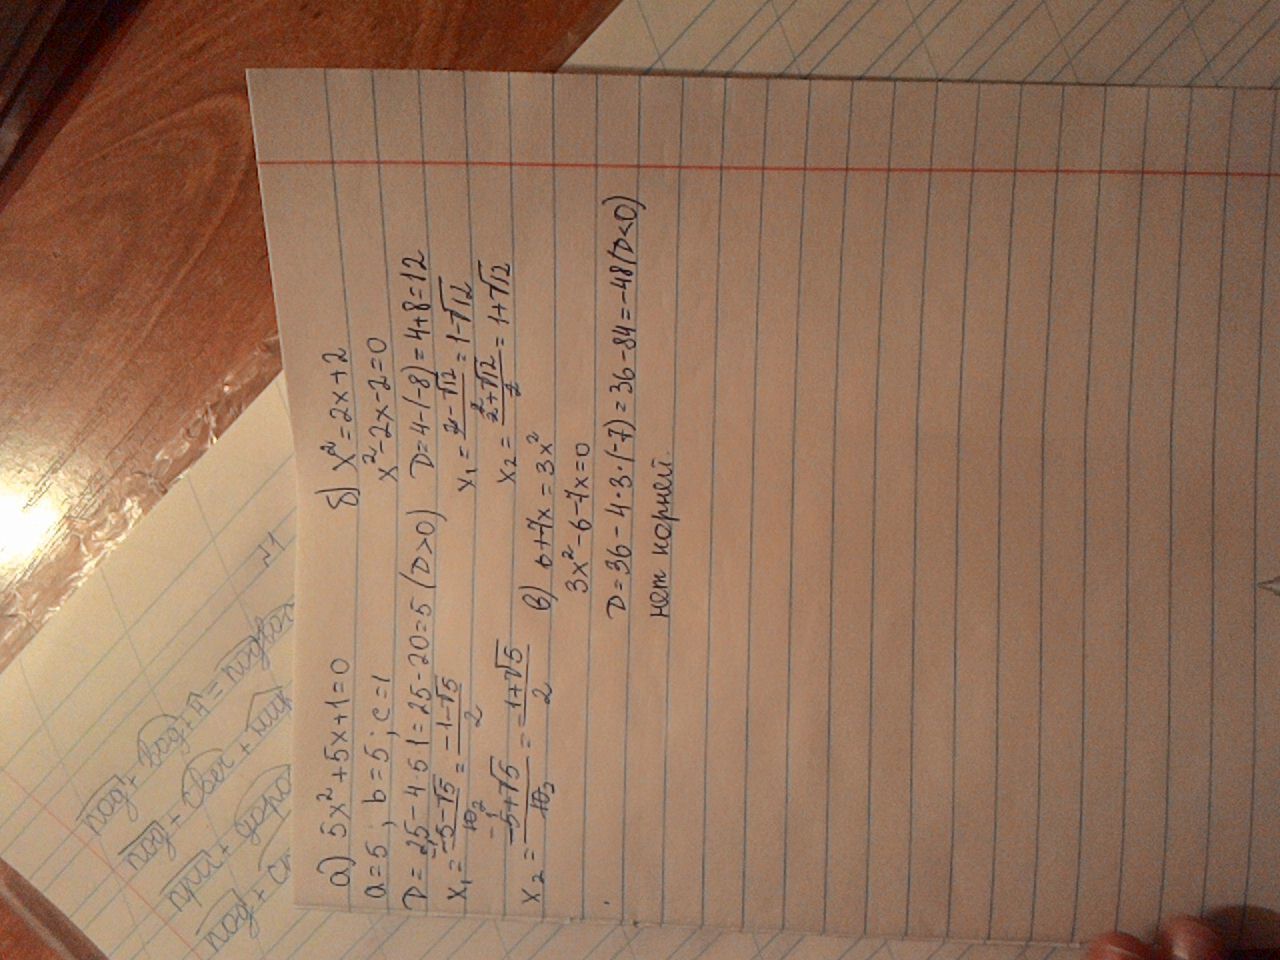 а) 5x²+5x+1=0
a=5; b=5; c=1
D=25-4·5·1=25-20=5 (D>0)
x₁= -5-√5 / 10 = -1-√5 / 2
x₂= -5+√5 / 10 = -1+√5 / 2
б) x²=2x+2
x²-2x-2=0
D=4-(-8)=4+8=12
x₁= 2-√12 / 2 =1-√12
x₂= 2+√12 / 2 =1+√12
в) 6+7x=3x²
3x²-6-7x=0
D=36-4·3·(-7)=36-84=-48(D<0)
нет корней.
№1
под+вод+А=
под+свег+
при+
под+